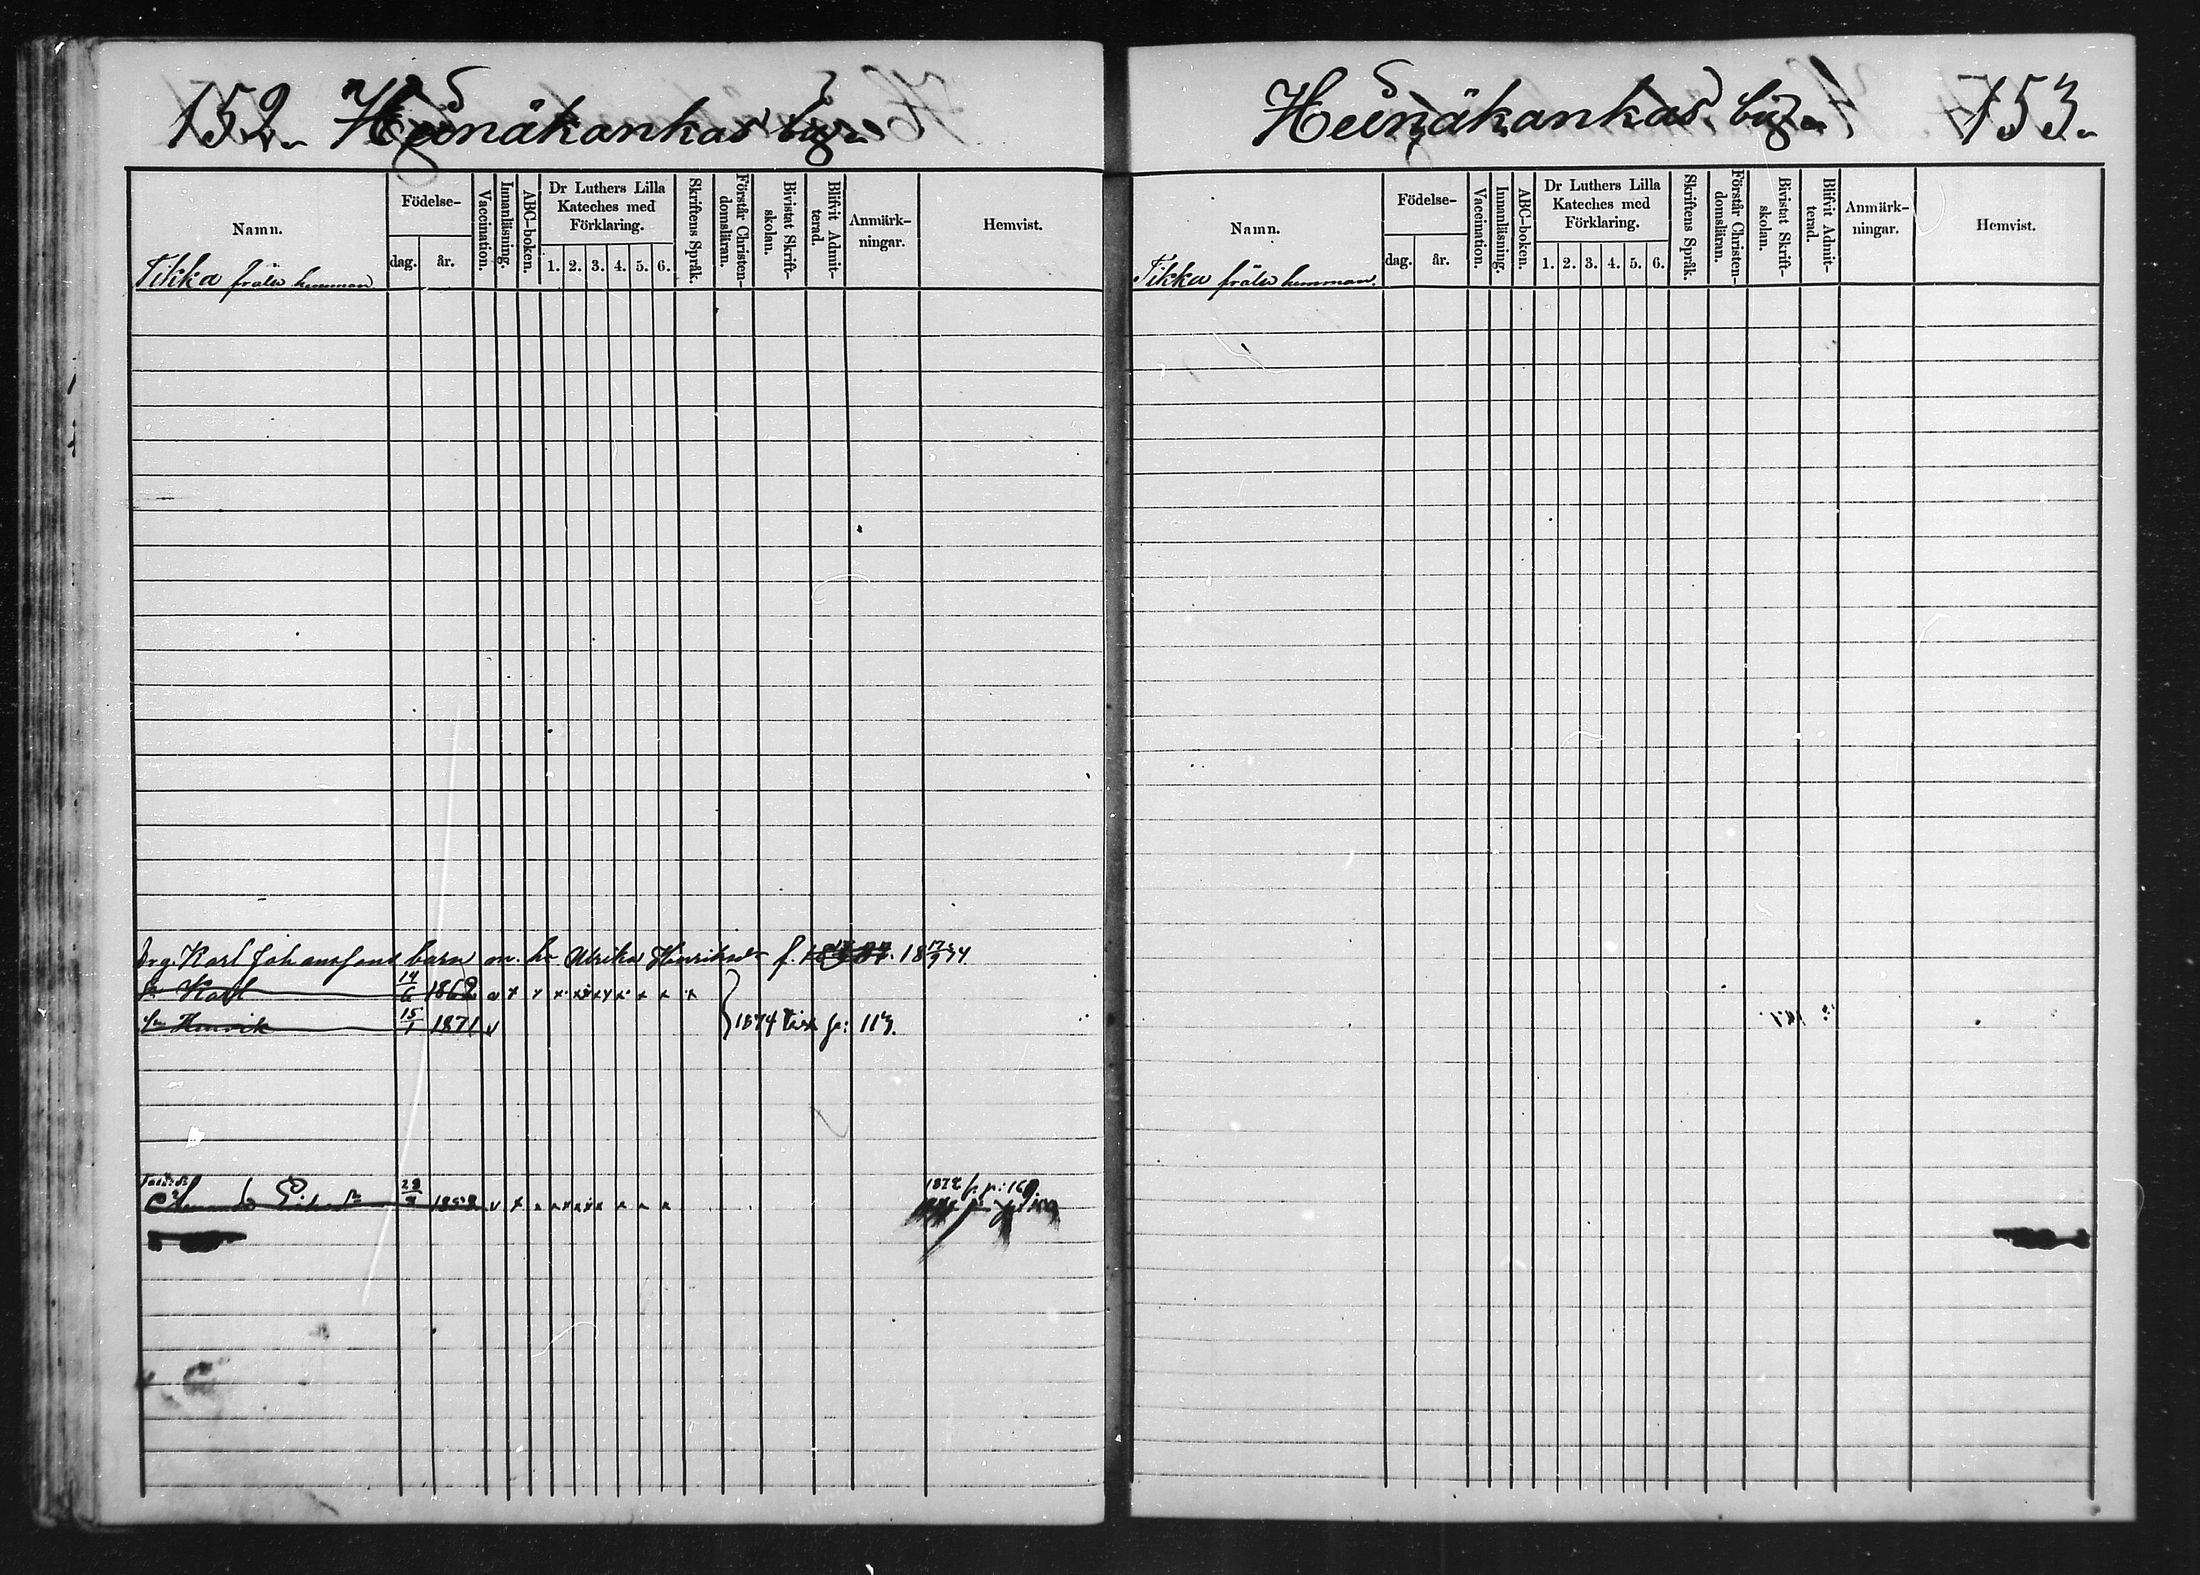 152. Heinäkankas by.
Namn. Födelse- dag. år. Vaccination. Innanläsning. ABC-boken. Dr Luthers Lilla Kateches med Förklaring. 1. 2. 3. 4. 5. 6. Skriftens Språk. Förstår Christendomsläran. Bivistat Skriftskolan. Blifvit Admitterad. Anmärkningar. Hemvist.
Tikka frälse hemman
Karl Johanssons barn m. h. Ulrika Henriksdr f. 18 17/9 34
sn Karl 14/6 1862 v x x x x x x x x x x
sn Henrik 15/1 1871 v } 1874 p: 113.
28/9 1858 v x x x x x x x x 1872 p: 160.
Heinäkankas by. 153.
Namn. Födelse- dag. år. Vaccination. Innanläsning. ABC-boken. Dr Luthers Lilla Kateches med Förklaring. 1. 2. 3. 4. 5. 6. Skriftens Språk. Förstår Christendomsläran. Bivistat Skriftskolan. Blifvit Admitterad. Anmärkningar. Hemvist.
Tikka frälse hemman.